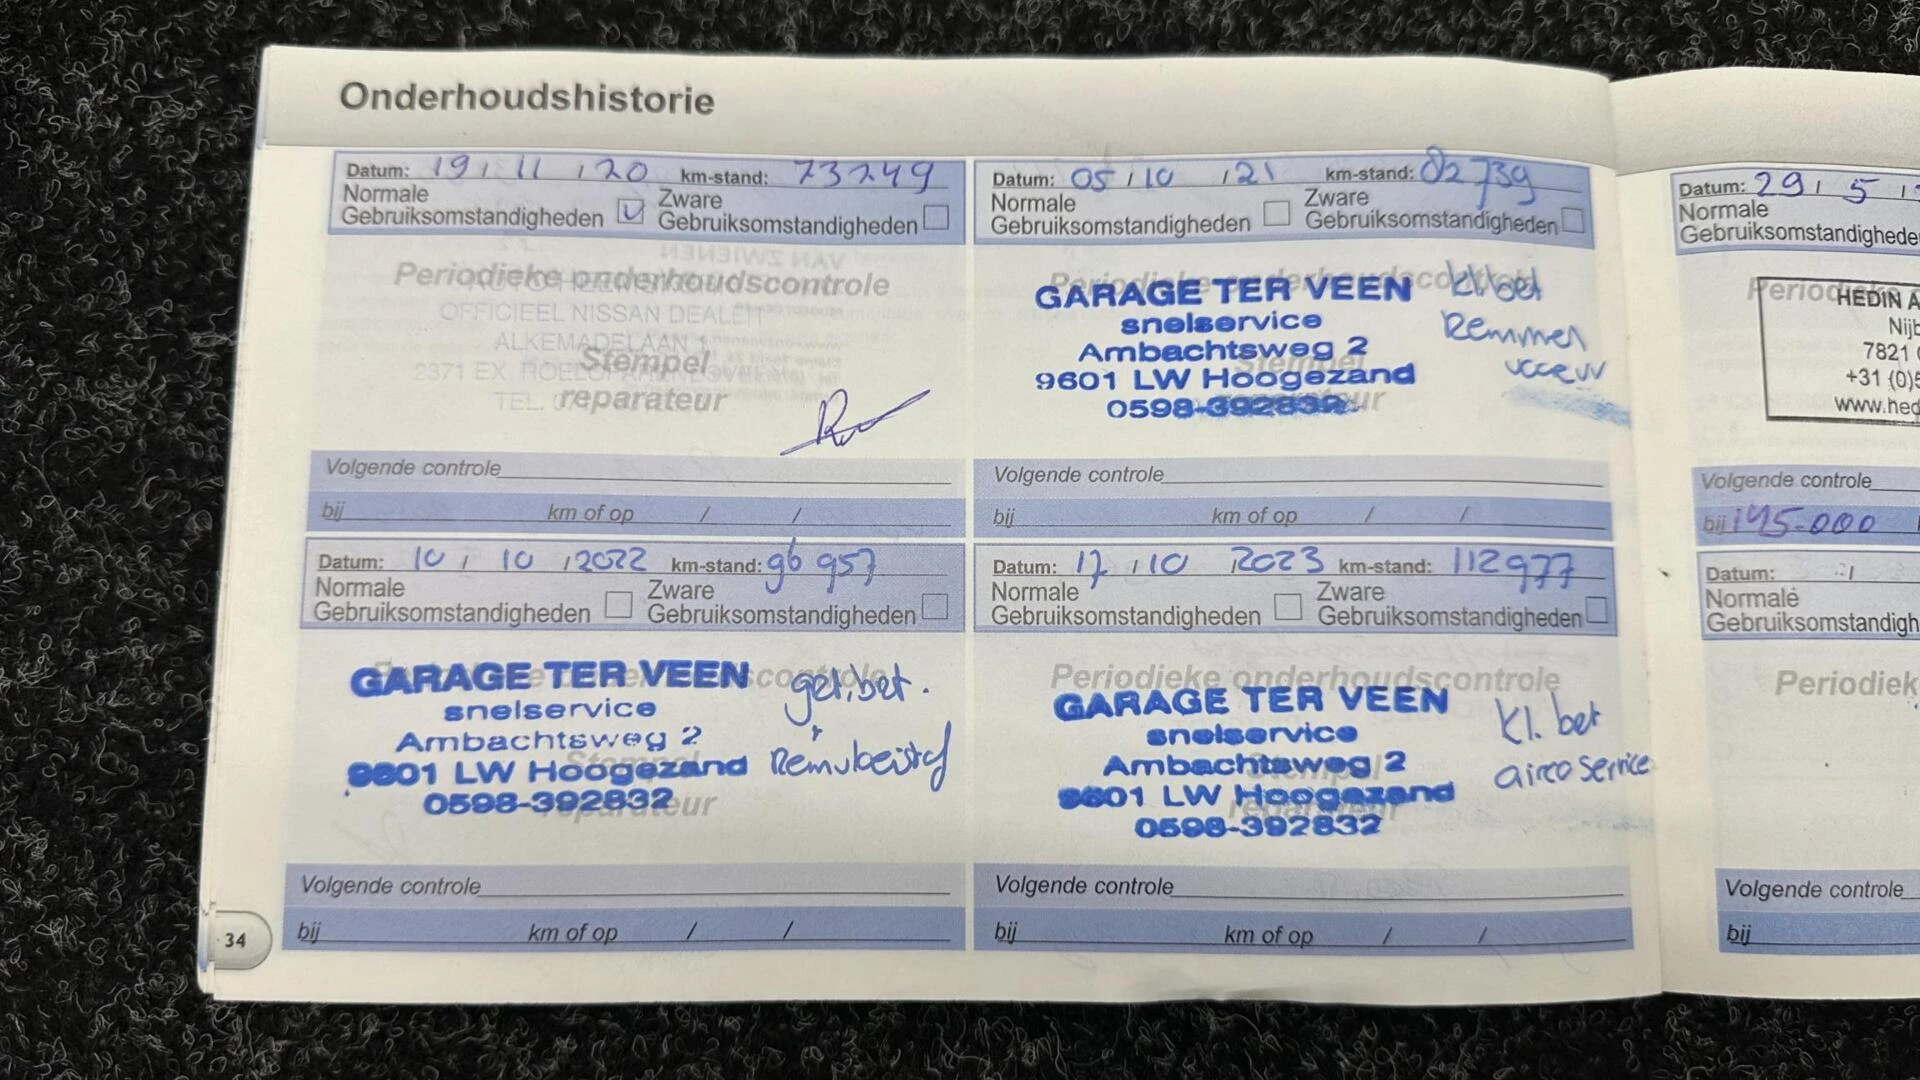 Onderhoudshistorie
Datum: 19 / 11 / 20 km-stand: 73249
Normale Gebruiksomstandigheden Zware Gebruiksomstandigheden
Periodieke onderhoudscontrole
OFFICIEEL NISSAN DEALER
ALKEMADELAAN 1
Stempel
2371 EX
reparateur
TEL.
Volgende controle
bij km of op / /
Datum: 05 / 10 / 21 km-stand: 82739
Normale Gebruiksomstandigheden Zware Gebruiksomstandigheden
Periodieke onderhoudscontrole
GARAGE TER VEEN kl. bet
snelservice Remmen
Ambachtsweg 2
Stempel
9601 LW Hoogezand
reparateur
0598-392832
Volgende controle
bij km of op / /
Datum: 10 / 10 / 2022 km-stand: 96957
Normale Gebruiksomstandigheden Zware Gebruiksomstandigheden
GARAGE TER VEEN
snelservice
Ambachtsweg 2
Stempel
9601 LW Hoogezand
0598-392832
reparateur
Volgende controle
bij km of op / /
Datum: 17 / 10 / 2023 km-stand: 112977
Normale Gebruiksomstandigheden Zware Gebruiksomstandigheden
Periodieke onderhoudscontrole
GARAGE TER VEEN kl. bet
snelservice
Ambachtsweg 2 airco service
Stempel
9601 LW Hoogezand
reparateur
0598-392832
Volgende controle
bij km of op / /
34
Datum: 29 / 5 /
Normale
Gebruiksomstandighede
Period
HEDIN A
Nijb
7821
+31 (0)5
www.hed
Volgende controle
bij 145-000
Datum: /
Normale
Gebruiksomstandigh
Periodiek
Volgende controle
bij